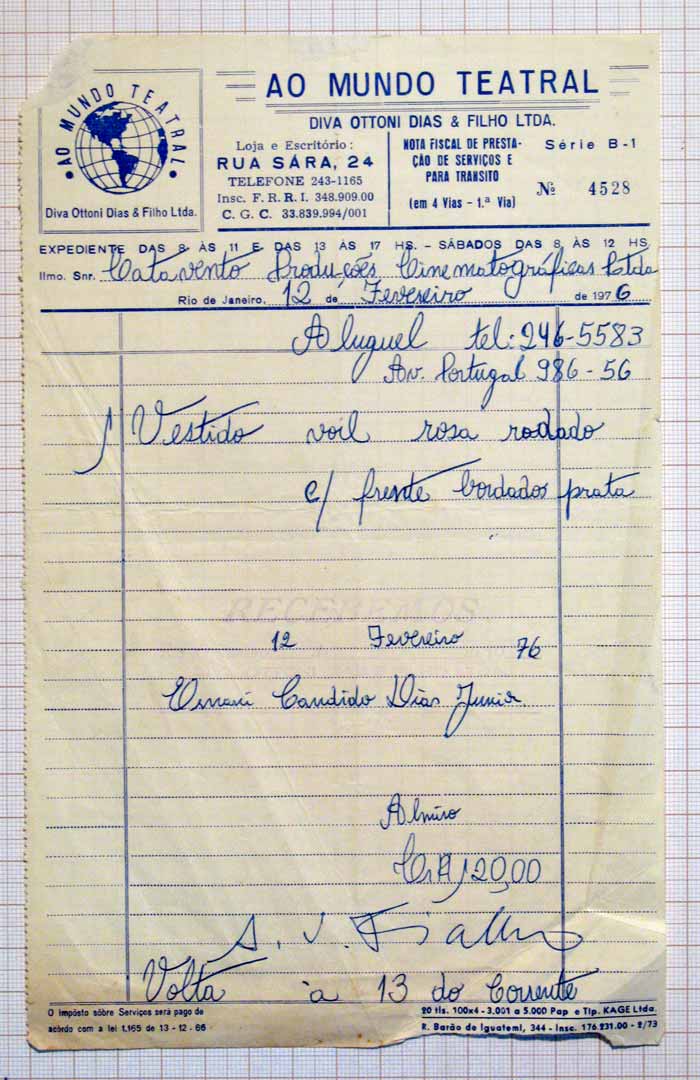 AO MUNDO TEATRAL
Diva Ottoni Dias & Filho Ltda.
AO MUNDO TEATRAL
DIVA OTTONI DIAS & FILHO LTDA.
Loja e Escritório:
RUA SÁRA, 24
TELEFONE 243-1165
Insc. F. R. R. I. 348.909.00
C. G. C. 33.839.994/001
NOTA FISCAL DE PRESTA-
ÇÃO DE SERVIÇOS E
PARA TRANSITO
(em 4 Vias - 1.ª Via)
Série B-1
Nº 4528
EXPEDIENTE DAS 8 ÀS 11 E DAS 13 ÀS 17 HS. - SÁBADOS DAS 8 ÀS 12 HS
Ilmo. Snr. Catavento Produções Cinematográficas Ltda
Rio de Janeiro, 12 de Fevereiro de 1976
Aluguel tel: 246-5583
Av. Portugal 986-56
1 Vestido voil rosa rodado
c/ frente bordados prata
RECEBEMOS
12 Fevereiro 76
Ernani Candido Dias Junior
Almiro
Cr$ 120,00
Volta à 13 do Corrente
O impôsto sôbre Serviços será pago de
acôrdo com a lei 1.165 de 13-12-66
20 tls. 100x4 - 3.001 a 5.000 Pap e Tip. KAGE Ltda.
R. Barão de Iguatemi, 344 - Insc. 176.231.00 - 2/73